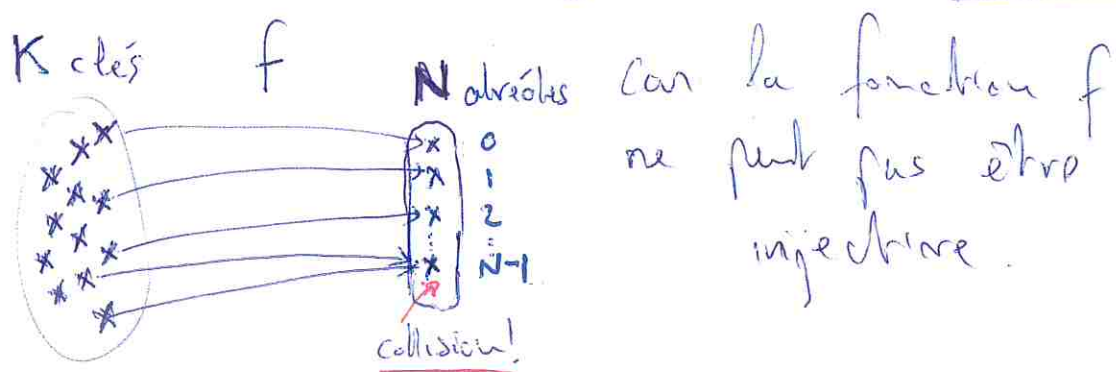 K clés f N alvéoles
0
1
2
N-1
collision!
car la fonction f
ne peut pas être
injective.